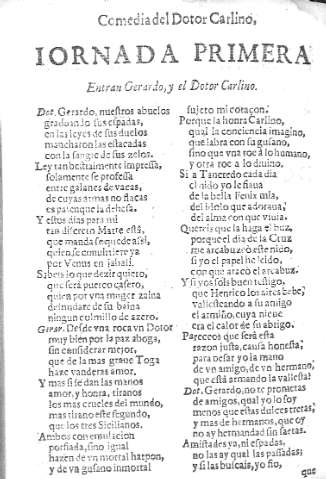 Comedia del Dotor Carlino,
IORNADA PRIMERA
Entran Gerardo, y el Dotor Carlino.
Dot. Gerardo, nuestros abuelos
graduando sus espadas,
en las leyes de sus duelos
mancharon las estacadas
con la sangre de sus zelos.
Ley tan bestialmente impressa,
solamente se professa
entre galanes de vacas,
de cuyas armas no flacas
es palenque la dehesa.
Y estos dias para mi
tan diferente Marte està,
que manda se quede assi,
quien se comuniere ya
por Venus en jabali.
Sabeis lo que dezir quiero,
que serà puerco casero,
quien por vna muger zaina
desnudare de su baina
ningun colmillo de azero.
Gerar. Desde vna roca vn Dotor
muy bien por la paz aboga,
sin considerar mejor,
que de la mas graue Toga
haze vanderas amor.
Y mas si se dan las manos
amor, y honra, tiranos
los mas crueles del mundo,
mas tirano este segundo,
que los tres Sicilianos.
Ambos con emulacion
porfiada, sino igual
hazen de vn mortal harpon,
y de vn gusano inmortal
sujeto mi coraçon.
Porque la honra Carlino,
qual la conciencia imagino,
que labra con su gusano,
sino que vna roe a lo humano,
y otra roe a lo diuino.
Si a Tancredo cada dia
el nido yo le fiaua
de la bella Fenix mia,
del idolo que adoraua,
del alma con que viuia.
Quereis que la haga el buz,
porque el dia de la Cruz
me arcabuzeò este nido,
si yo el papel he sido,
con que atacò el arcabuz.
Y si yo soy buen testigo,
que Henrico los aires bebe,
vallesteando a su amigo
el armiño, cuya nieue
era el calor de su abrigo.
Pareceos que serà esta
razon justa, causa honesta,
para besar yo la mano
de vn amigo, de vn hermano,
que està armando la vallesta?
Dot. Gerardo, no te prometas
de amigos, qual yo lo soy
menos que estas dulces tretas,
y mas de hermanos, que oy
no ay hermandad sin saetas.
Amistades ya, ni espadas,
no las ay qual las passadas;
y si las buscais, yo fio,
que